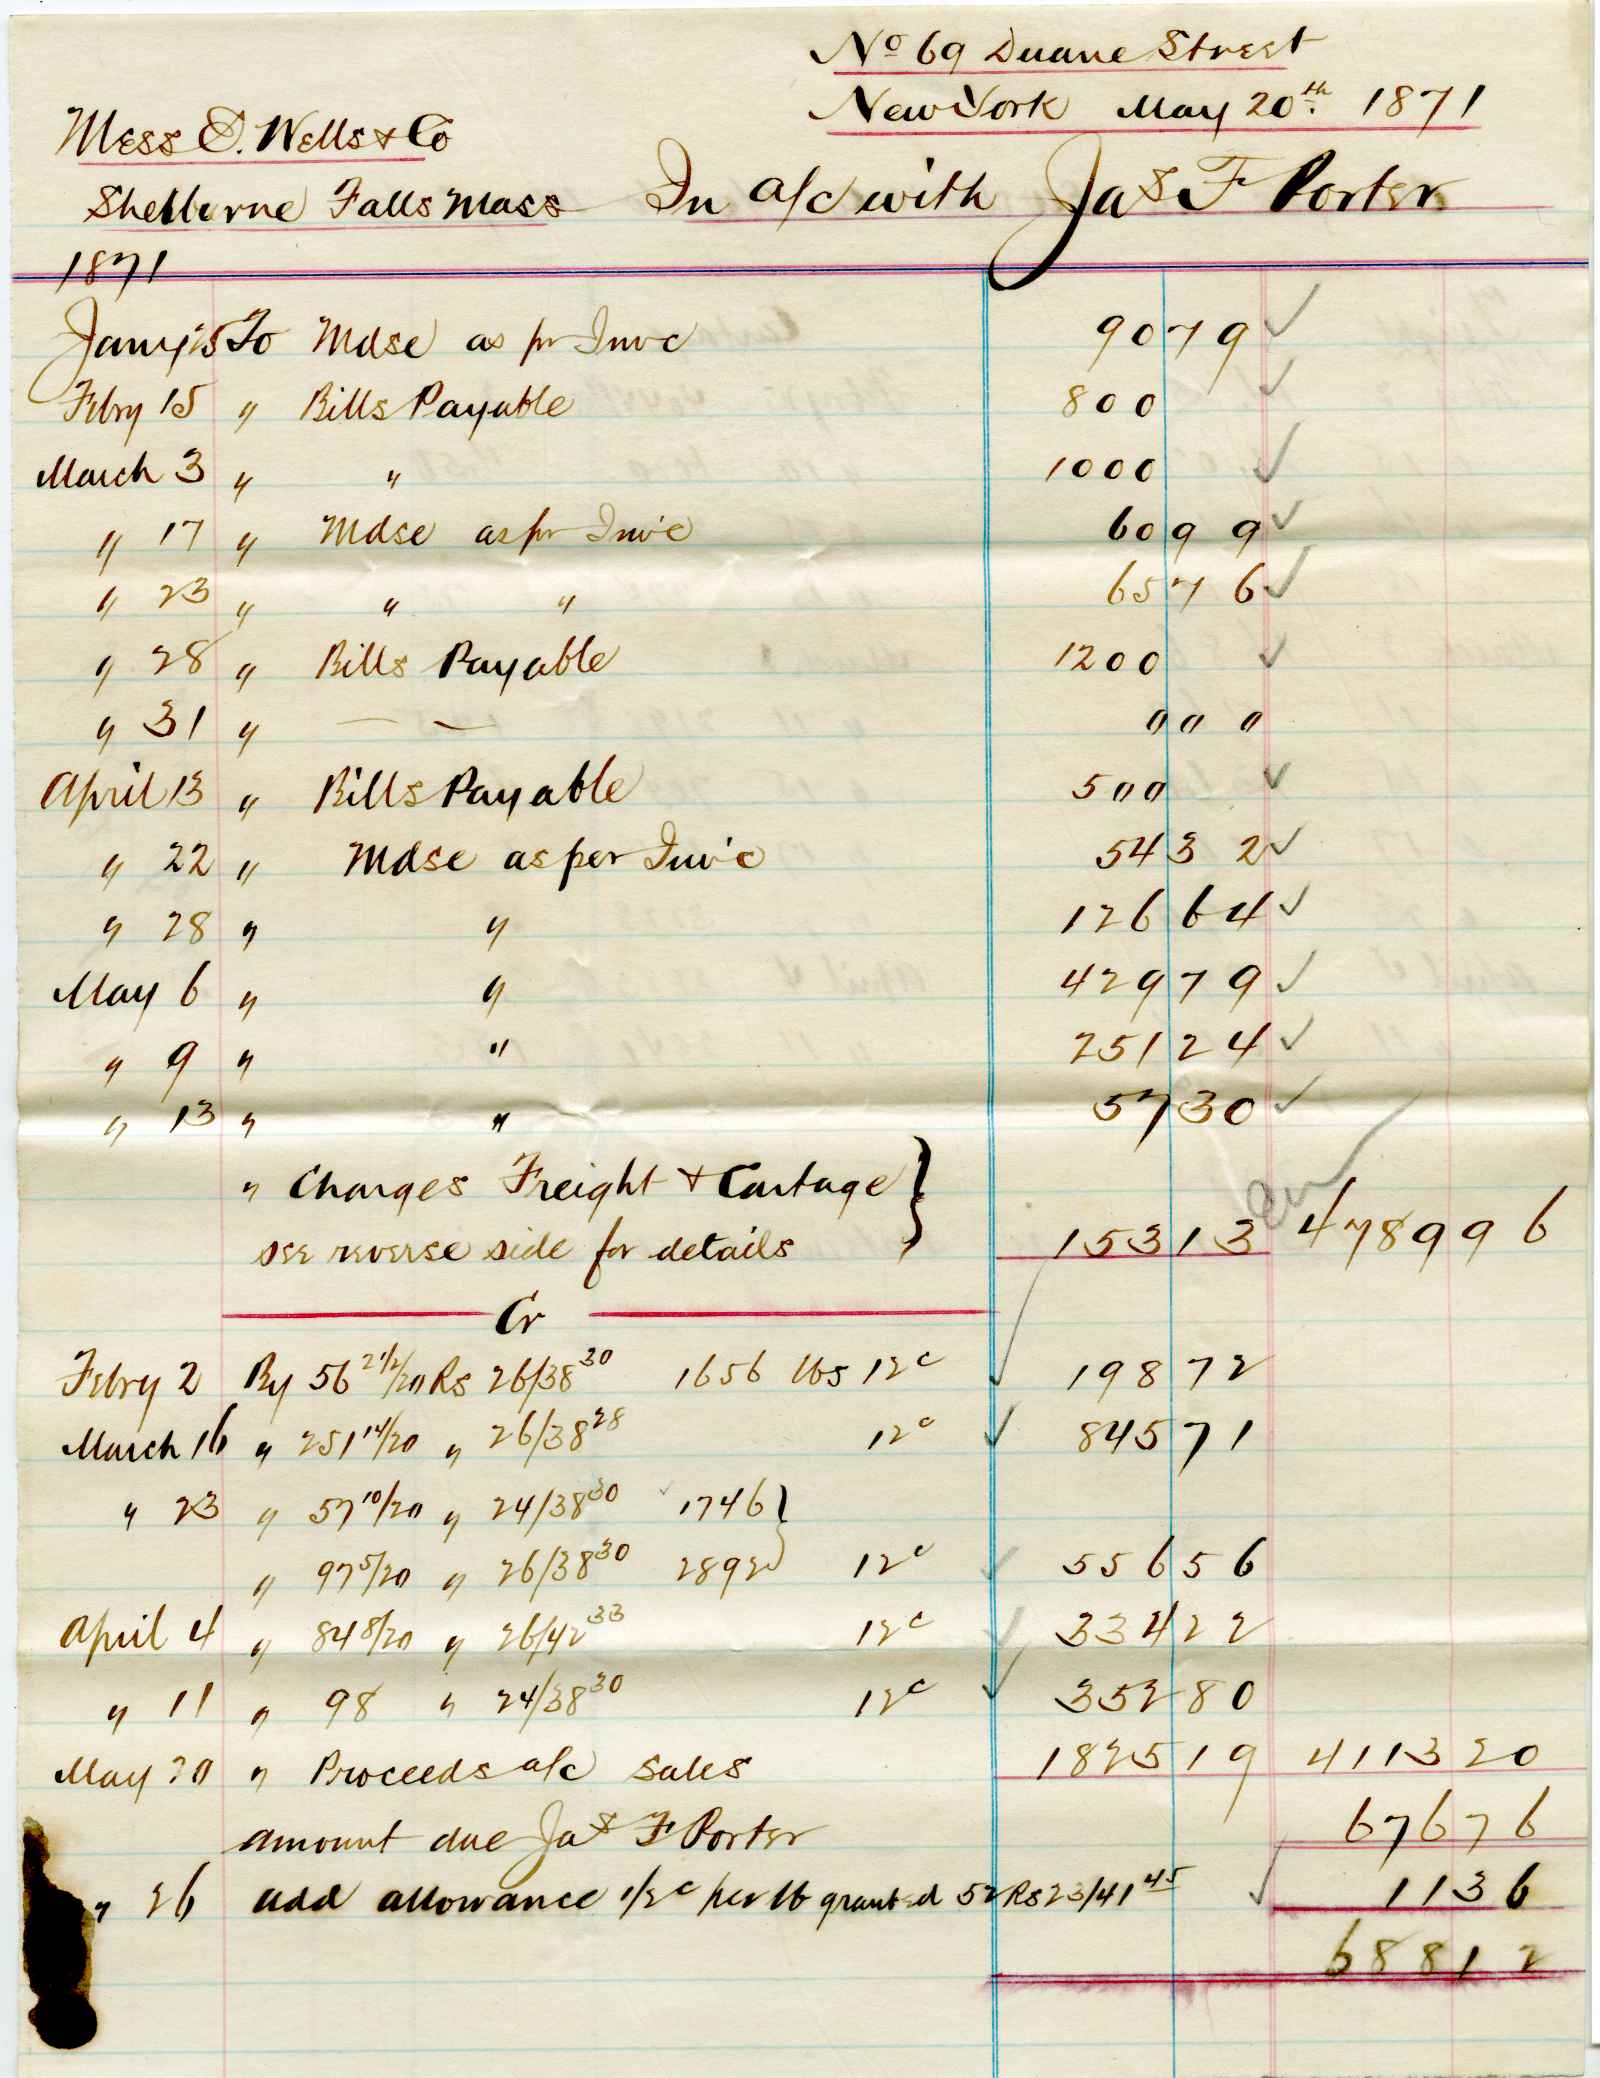 No 69 Duane Street
New York May 20th. 1871
Mess O. Wells & Co
Shelburne Falls Mass In a/c with Jas F Porter
1871
Jany 25 To Mdse as pr Inv'c 90 79
Febry 15 " Bills Payable 800
March 3 " " 1000
" 17 " Mdse as pr Inv'c 60 99
" 23 " " " 65 76
" 28 " Bills Payable 1200
" 31 " — — " " "
April 13 " Bills Payable 500
" 22 " Mdse as per Inv'c 54 32
" 28 " " 126 64
May 6 " " 429 79
" 9 " " 251 24
" 13 " " 57 30
" Charges Freight & Cartage
see reverse side for details 153 13 4789 96
Cr
Febry 2 By 56 21/2/20 Rs 26/38 30 1656 lbs 12c 198 72
March 16 " 251 14/20 " 26/38 28 12c 845 71
" 23 " 57 10/20 " 24/38 30 1746
" 97 5/20 " 26/38 30 2892 12c 556 56
April 4 " 84 8/20 " 26/42 33 12c 334 22
" 11 " 98 " 24/38 30 12c 352 80
May 20 " Proceeds a/c sales 1825 19 4113 20
amount due Jas F Porter 676 76
" 26 add allowance 1/2c per lb granted 52 Rs 23/41 45 11 36
688 12